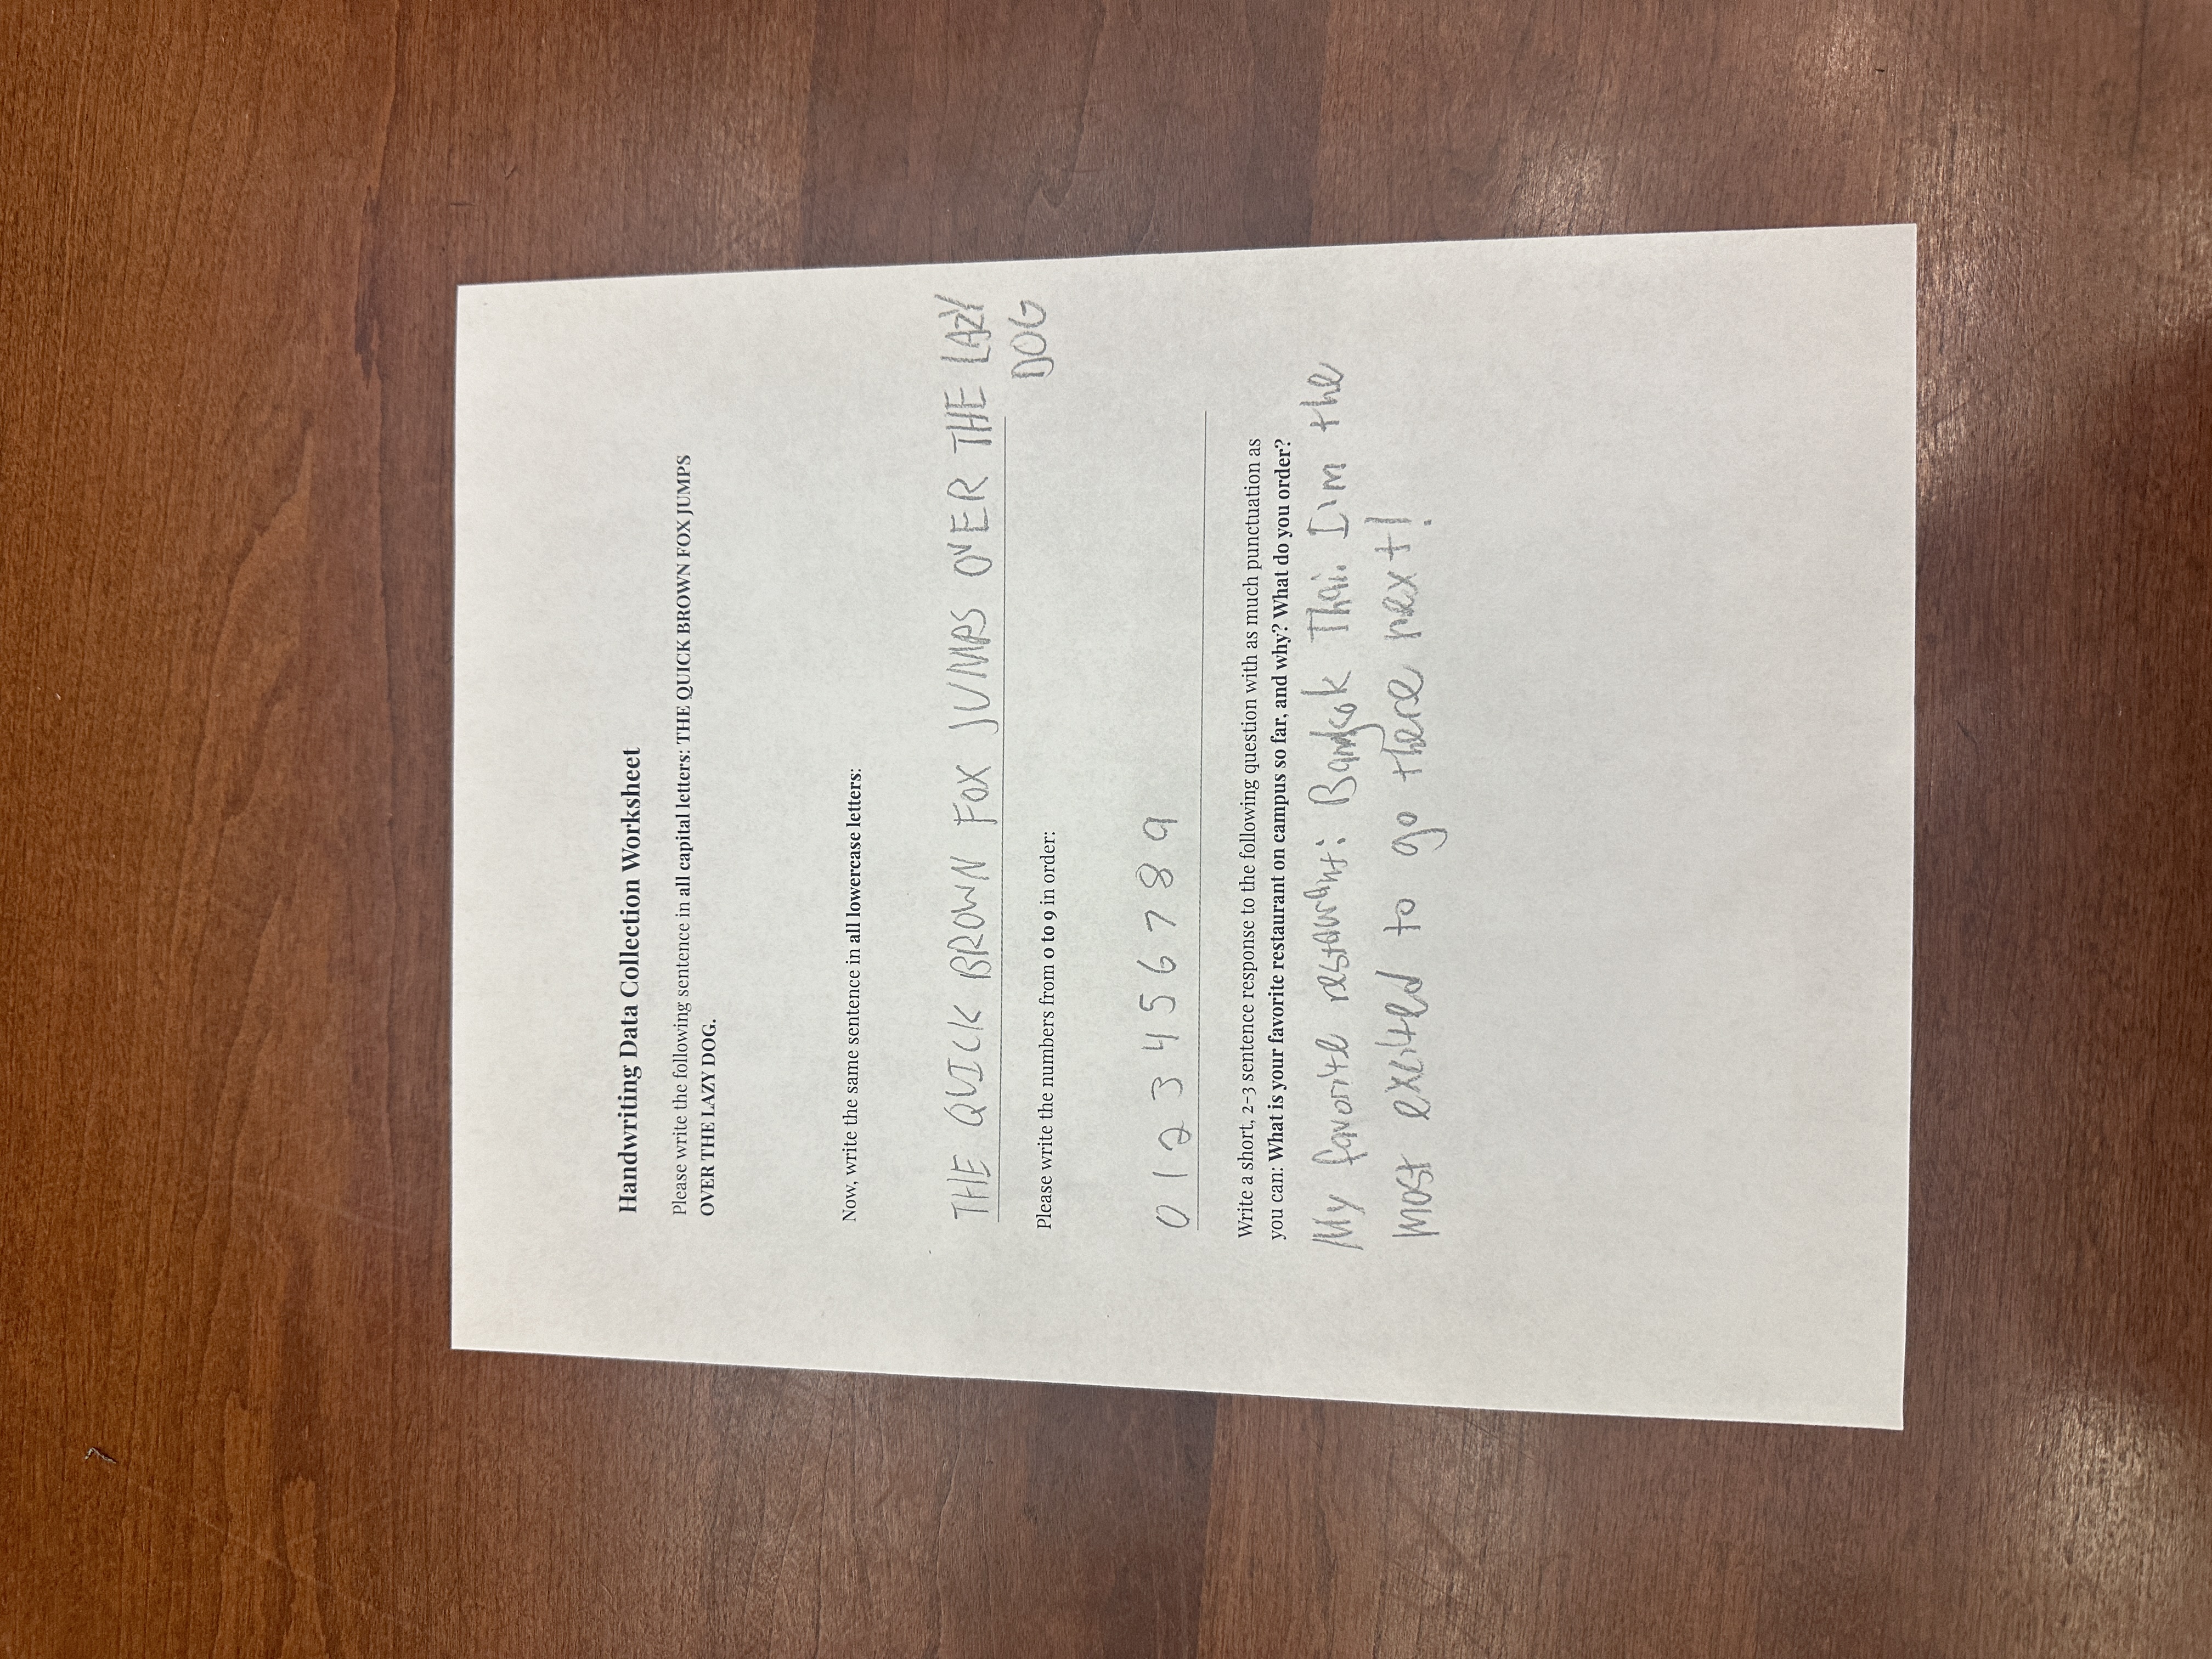 Handwriting Data Collection Worksheet
Please write the following sentence in all capital letters: THE QUICK BROWN FOX JUMPS
OVER THE LAZY DOG.
Now, write the same sentence in all lowercase letters:
THE QUICK BROWN FOX JUMPS OVER THE LAZY
DOG
Please write the numbers from 0 to 9 in order:
0 1 2 3 4 5 6 7 8 9
Write a short, 2-3 sentence response to the following question with as much punctuation as
you can: What is your favorite restaurant on campus so far, and why? What do you order?
My favorite restaurant: Bangkok Thai. I'm the
most excited to go there next!